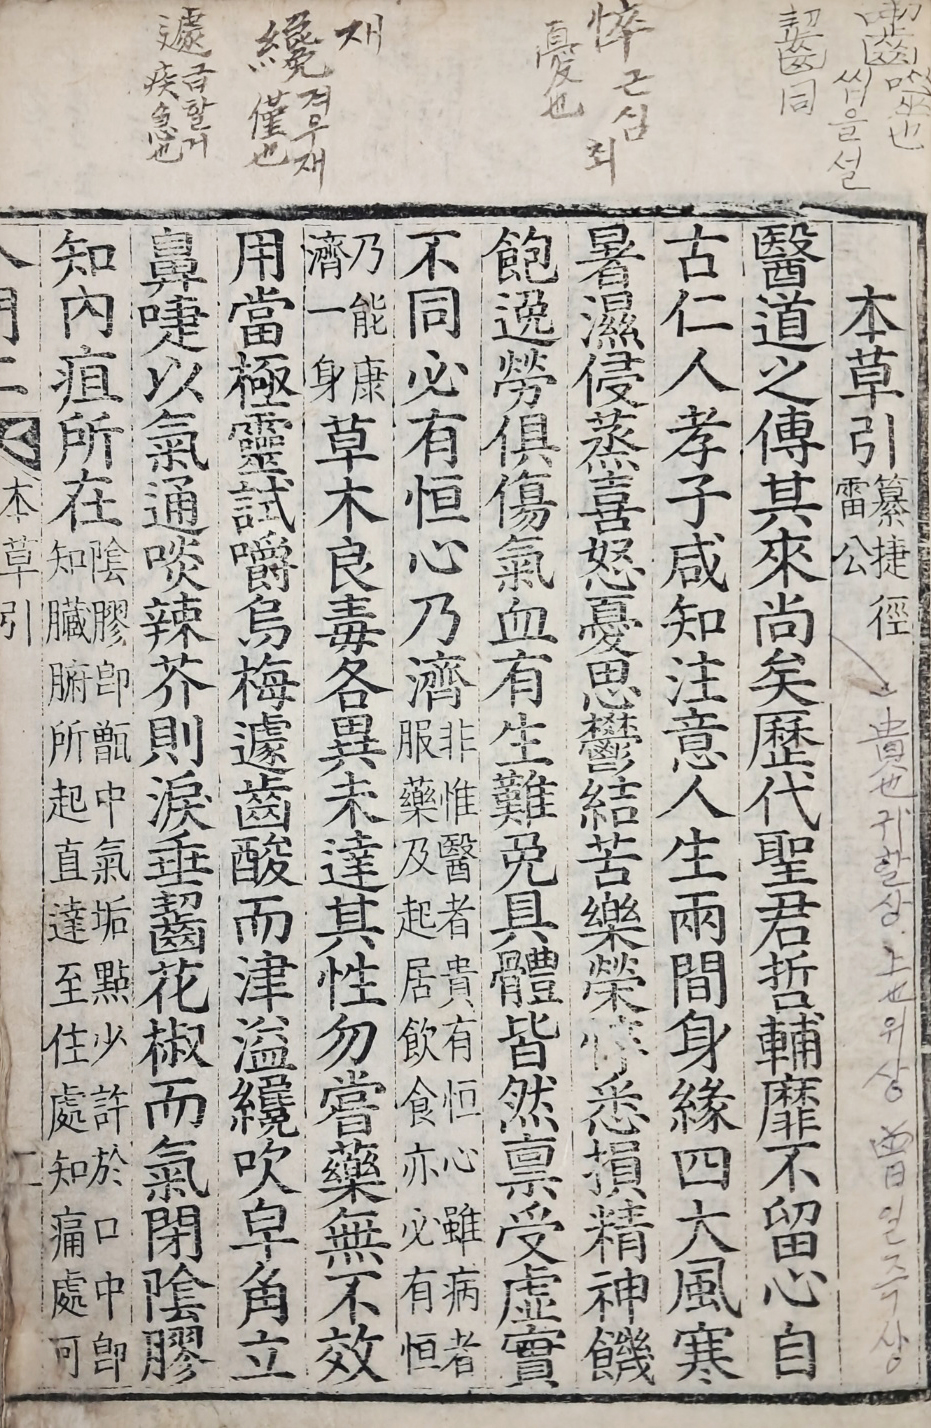 嚙齒噬也
씹을셜
齧同
悴 근심 최
憂也
纔 재
겨우재
僅也
遽 급할거
疾急也
本草引 纂捷徑
雷公
貴也 귀할상 上也 위상
曾일즉상
醫道之傳其來尚矣歷代聖君哲輔靡不留心自
古仁人孝子咸知注意人生兩間身緣四大風寒
暑濕侵蒸喜怒憂思鬱結苦樂榮悴悉損精神饑
飽逸勞俱傷氣血有生難免具體皆然禀受虛實
不同必有恒心乃濟 非惟醫者貴有恒心雖病者
服藥及起居飲食亦必有恒
乃能康
濟一身 草木良毒各異未達其性勿嘗藥無不效
用當極靈試嚼烏梅遽齒酸而津溢纔吹皁角立
鼻啑以氣通啖辣芥則淚垂齧花椒而氣閉陰膠
知內疽所在 陰膠卽甑中氣垢點少許於口中卽
知臟腑所起直達至住處知痛處可
入門二
本草引